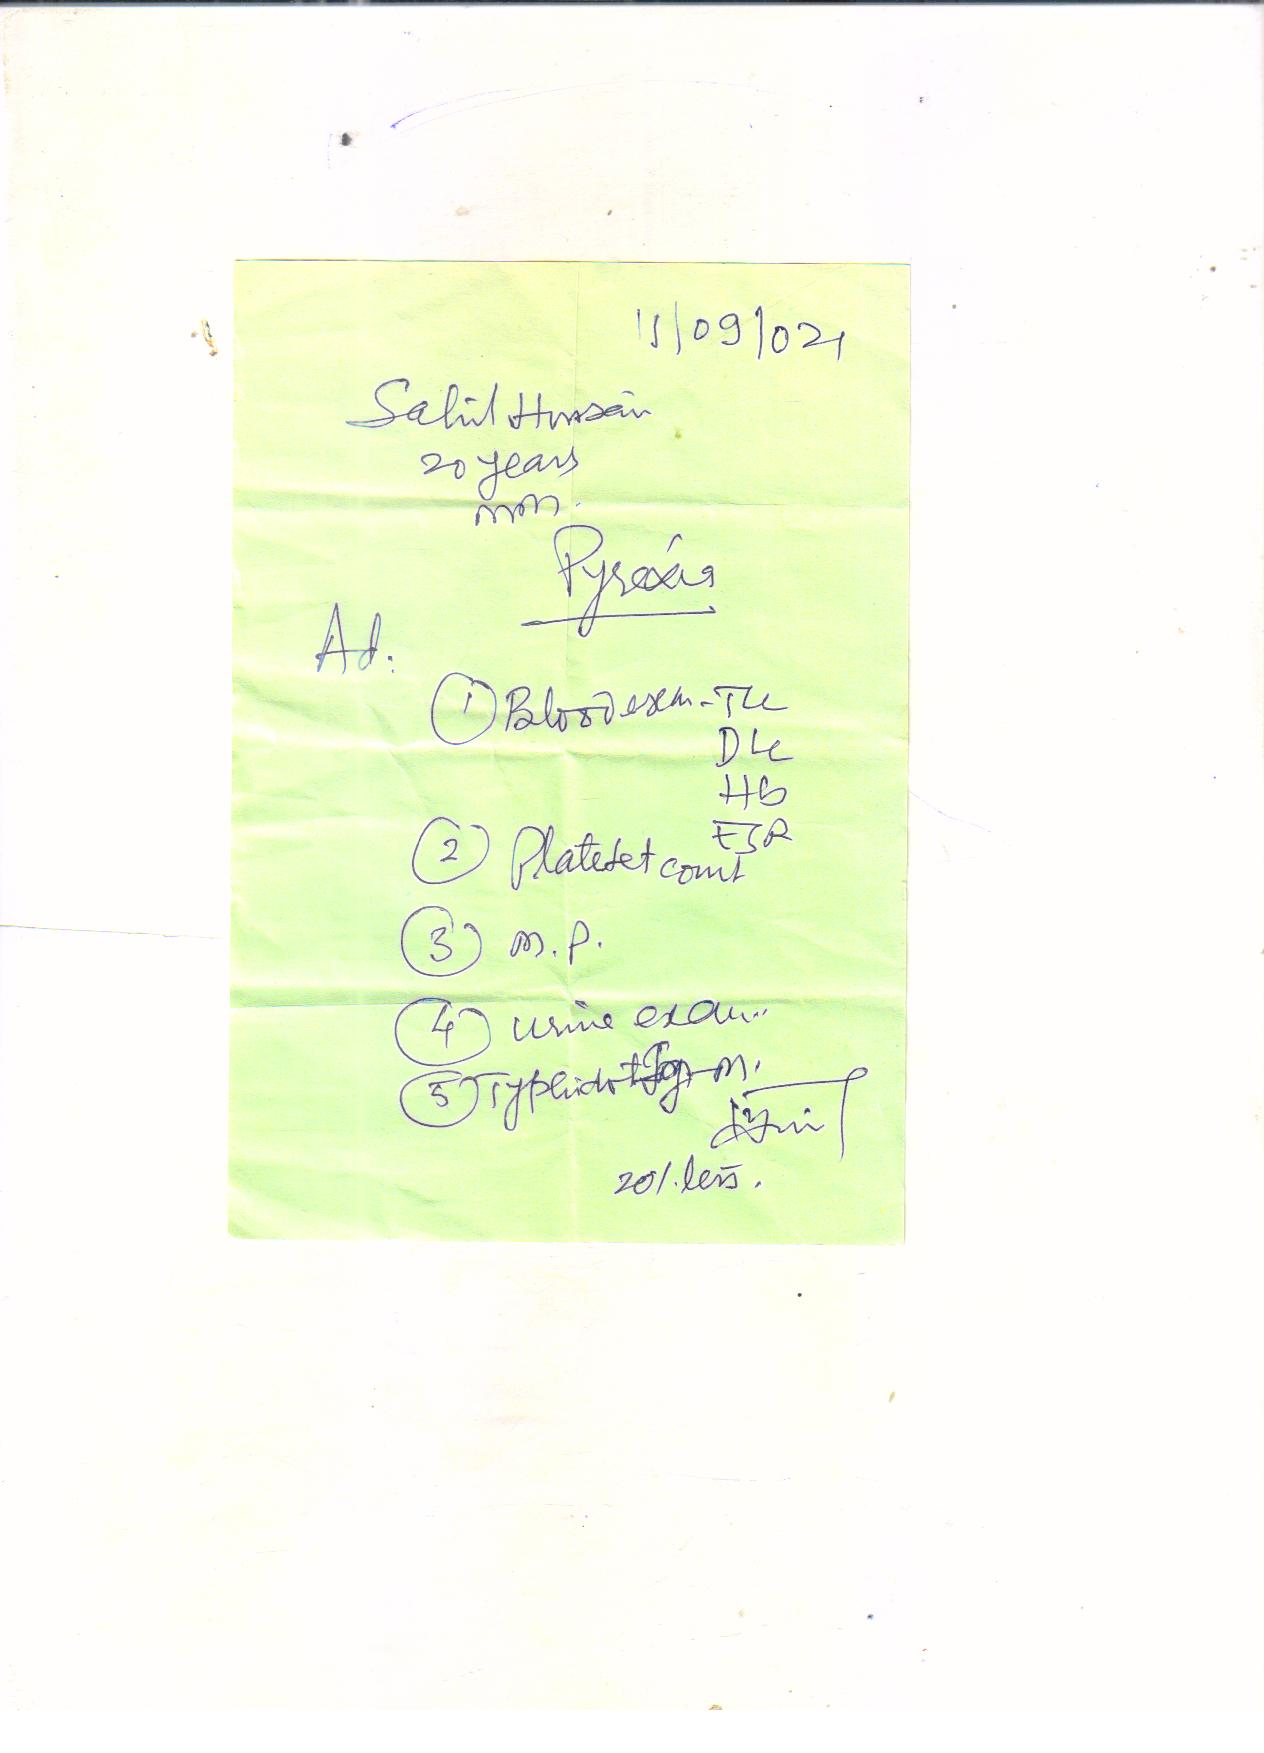 15/09/021
Sahil Hussain
20 years
mm.
Pyrexia
Ad:
① Blood exam - TLC
DLC
Hb
ESR
② Platelet count
③ M.P.
④ Urine exam..
⑤ Typhidot IgM.
20% less.